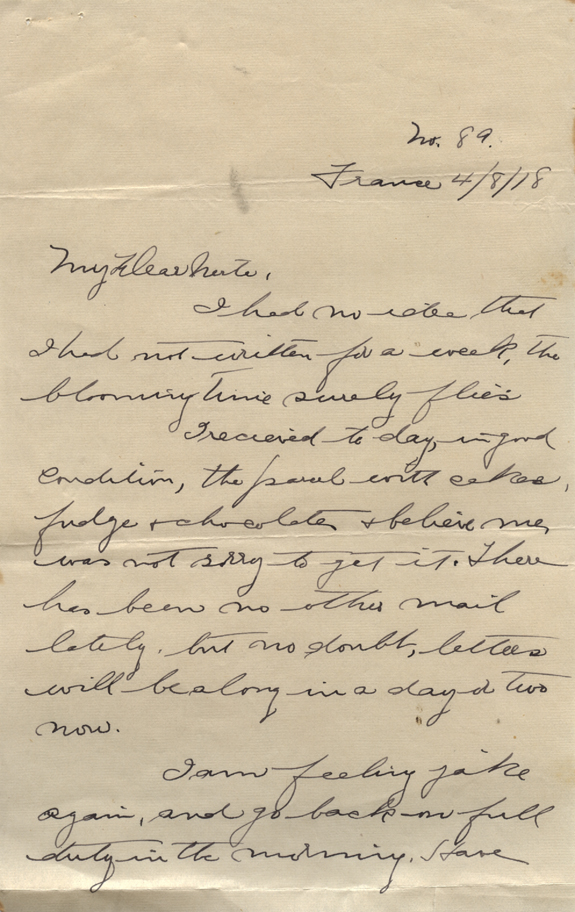 No. 89.
France 4/8/18
My Dear
I had no idea that
I had not written for a week, the
blooming time surely flies
I recieved to day, in good
condition, the parcel with cakes,
fudge + chocolates + believe me,
was not sorry to get it. There
has been no other mail
lately. but no doubt, letters
will be along in a day or two
now.
I am feeling jake
again, and go back on full
duty in the morning. Have